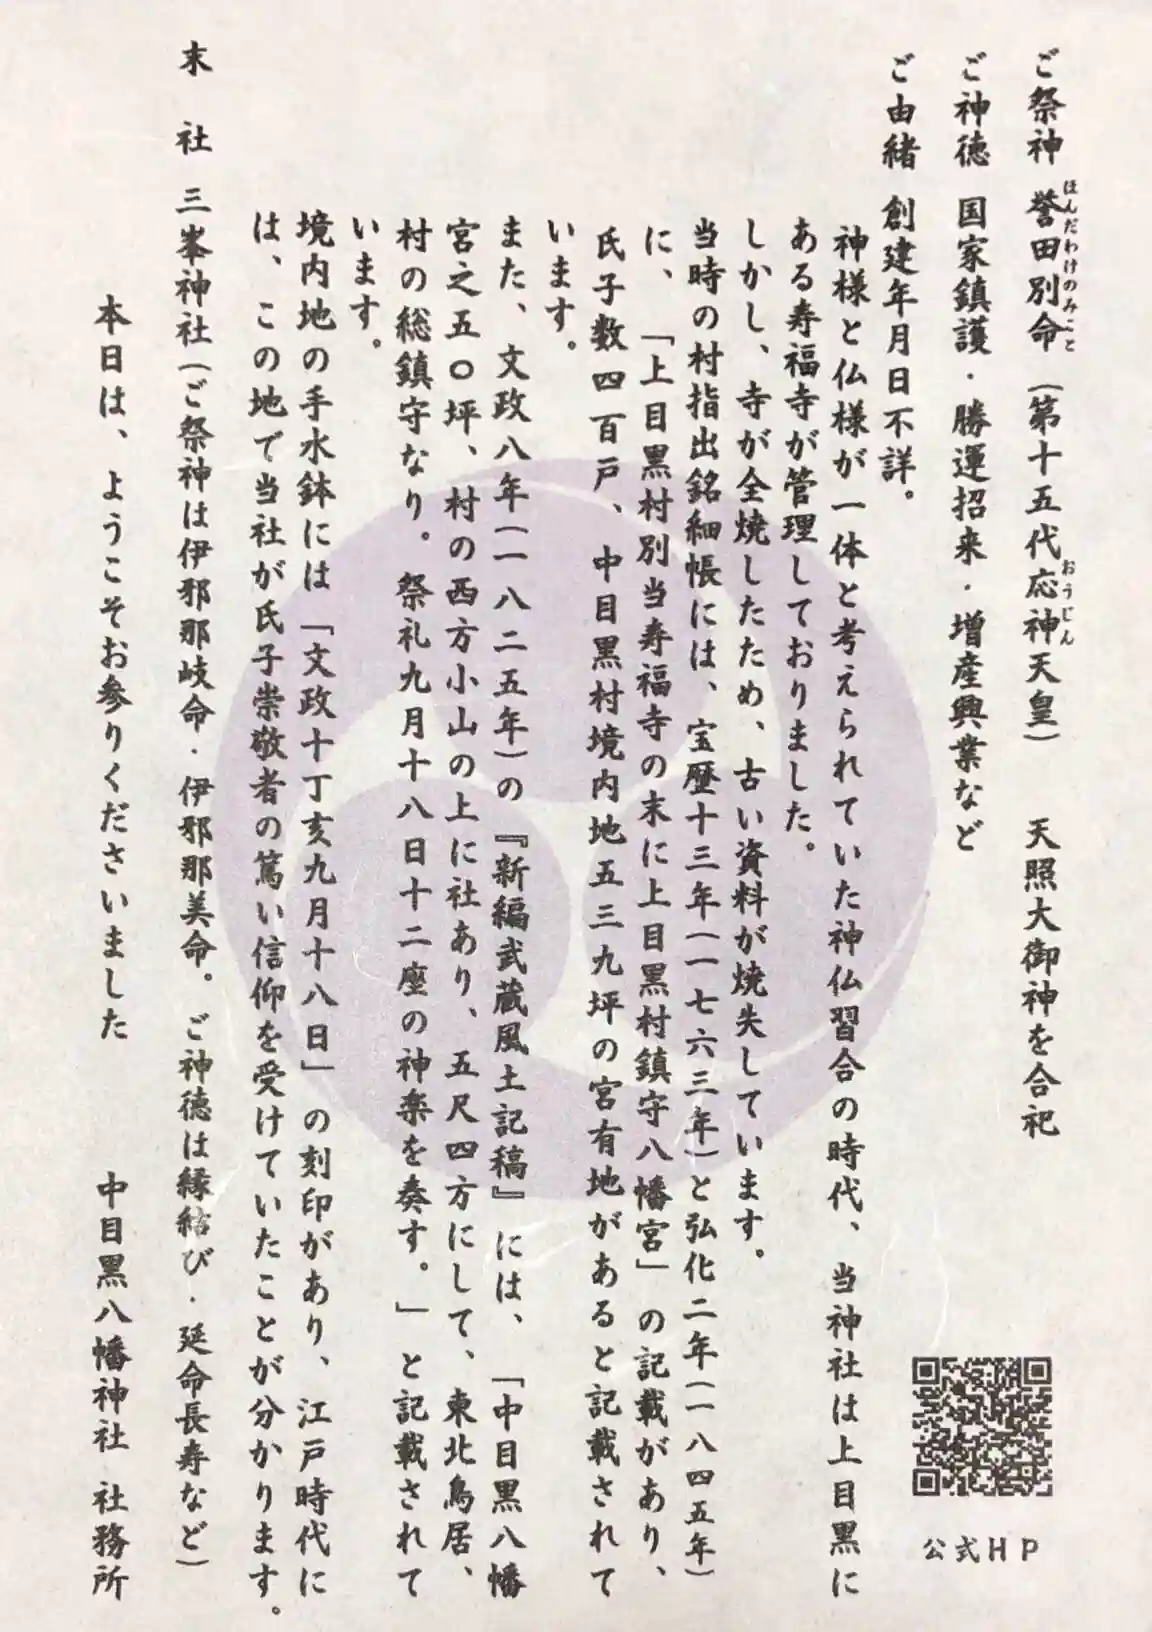 ご祭神 誉田別命（第十五代応神天皇） 天照大御神を合祀
ほんだわけのみこと
おうじん
ご神徳 国家鎮護・勝運招来・増産興業など
ご由緒 創建年月日不詳。
神様と仏様が一体と考えられていた神仏習合の時代、当神社は上目黒に
ある寿福寺が管理しておりました。
しかし、寺が全焼したため、古い資料が焼失しています。
当時の村指出銘細帳には、宝歴十三年（一七六三年）と弘化二年（一八四五年）
に、「上目黒村別当寿福寺の末に上目黒村鎮守八幡宮」の記載があり、
氏子数四百戸、中目黒村境内地五三九坪の宮有地があると記載されて
います。
また、文政八年（一八二五年）の『新編武蔵風土記稿』には、「中目黒八幡
宮之五〇坪、村の西方小山の上に社あり、五尺四方にして、東北鳥居、
村の総鎮守なり。祭礼九月十八日十二座の神楽を奏す。」と記載されて
います。
境内地の手水鉢には「文政十丁亥九月十八日」の刻印があり、江戸時代に
は、この地で当社が氏子崇敬者の篤い信仰を受けていたことが分かります。
末 社 三峯神社（ご祭神は伊邪那岐命・伊邪那美命。ご神徳は縁結び・延命長寿など）
本日は、ようこそお参りくださいました 中目黒八幡神社 社務所
公式HP